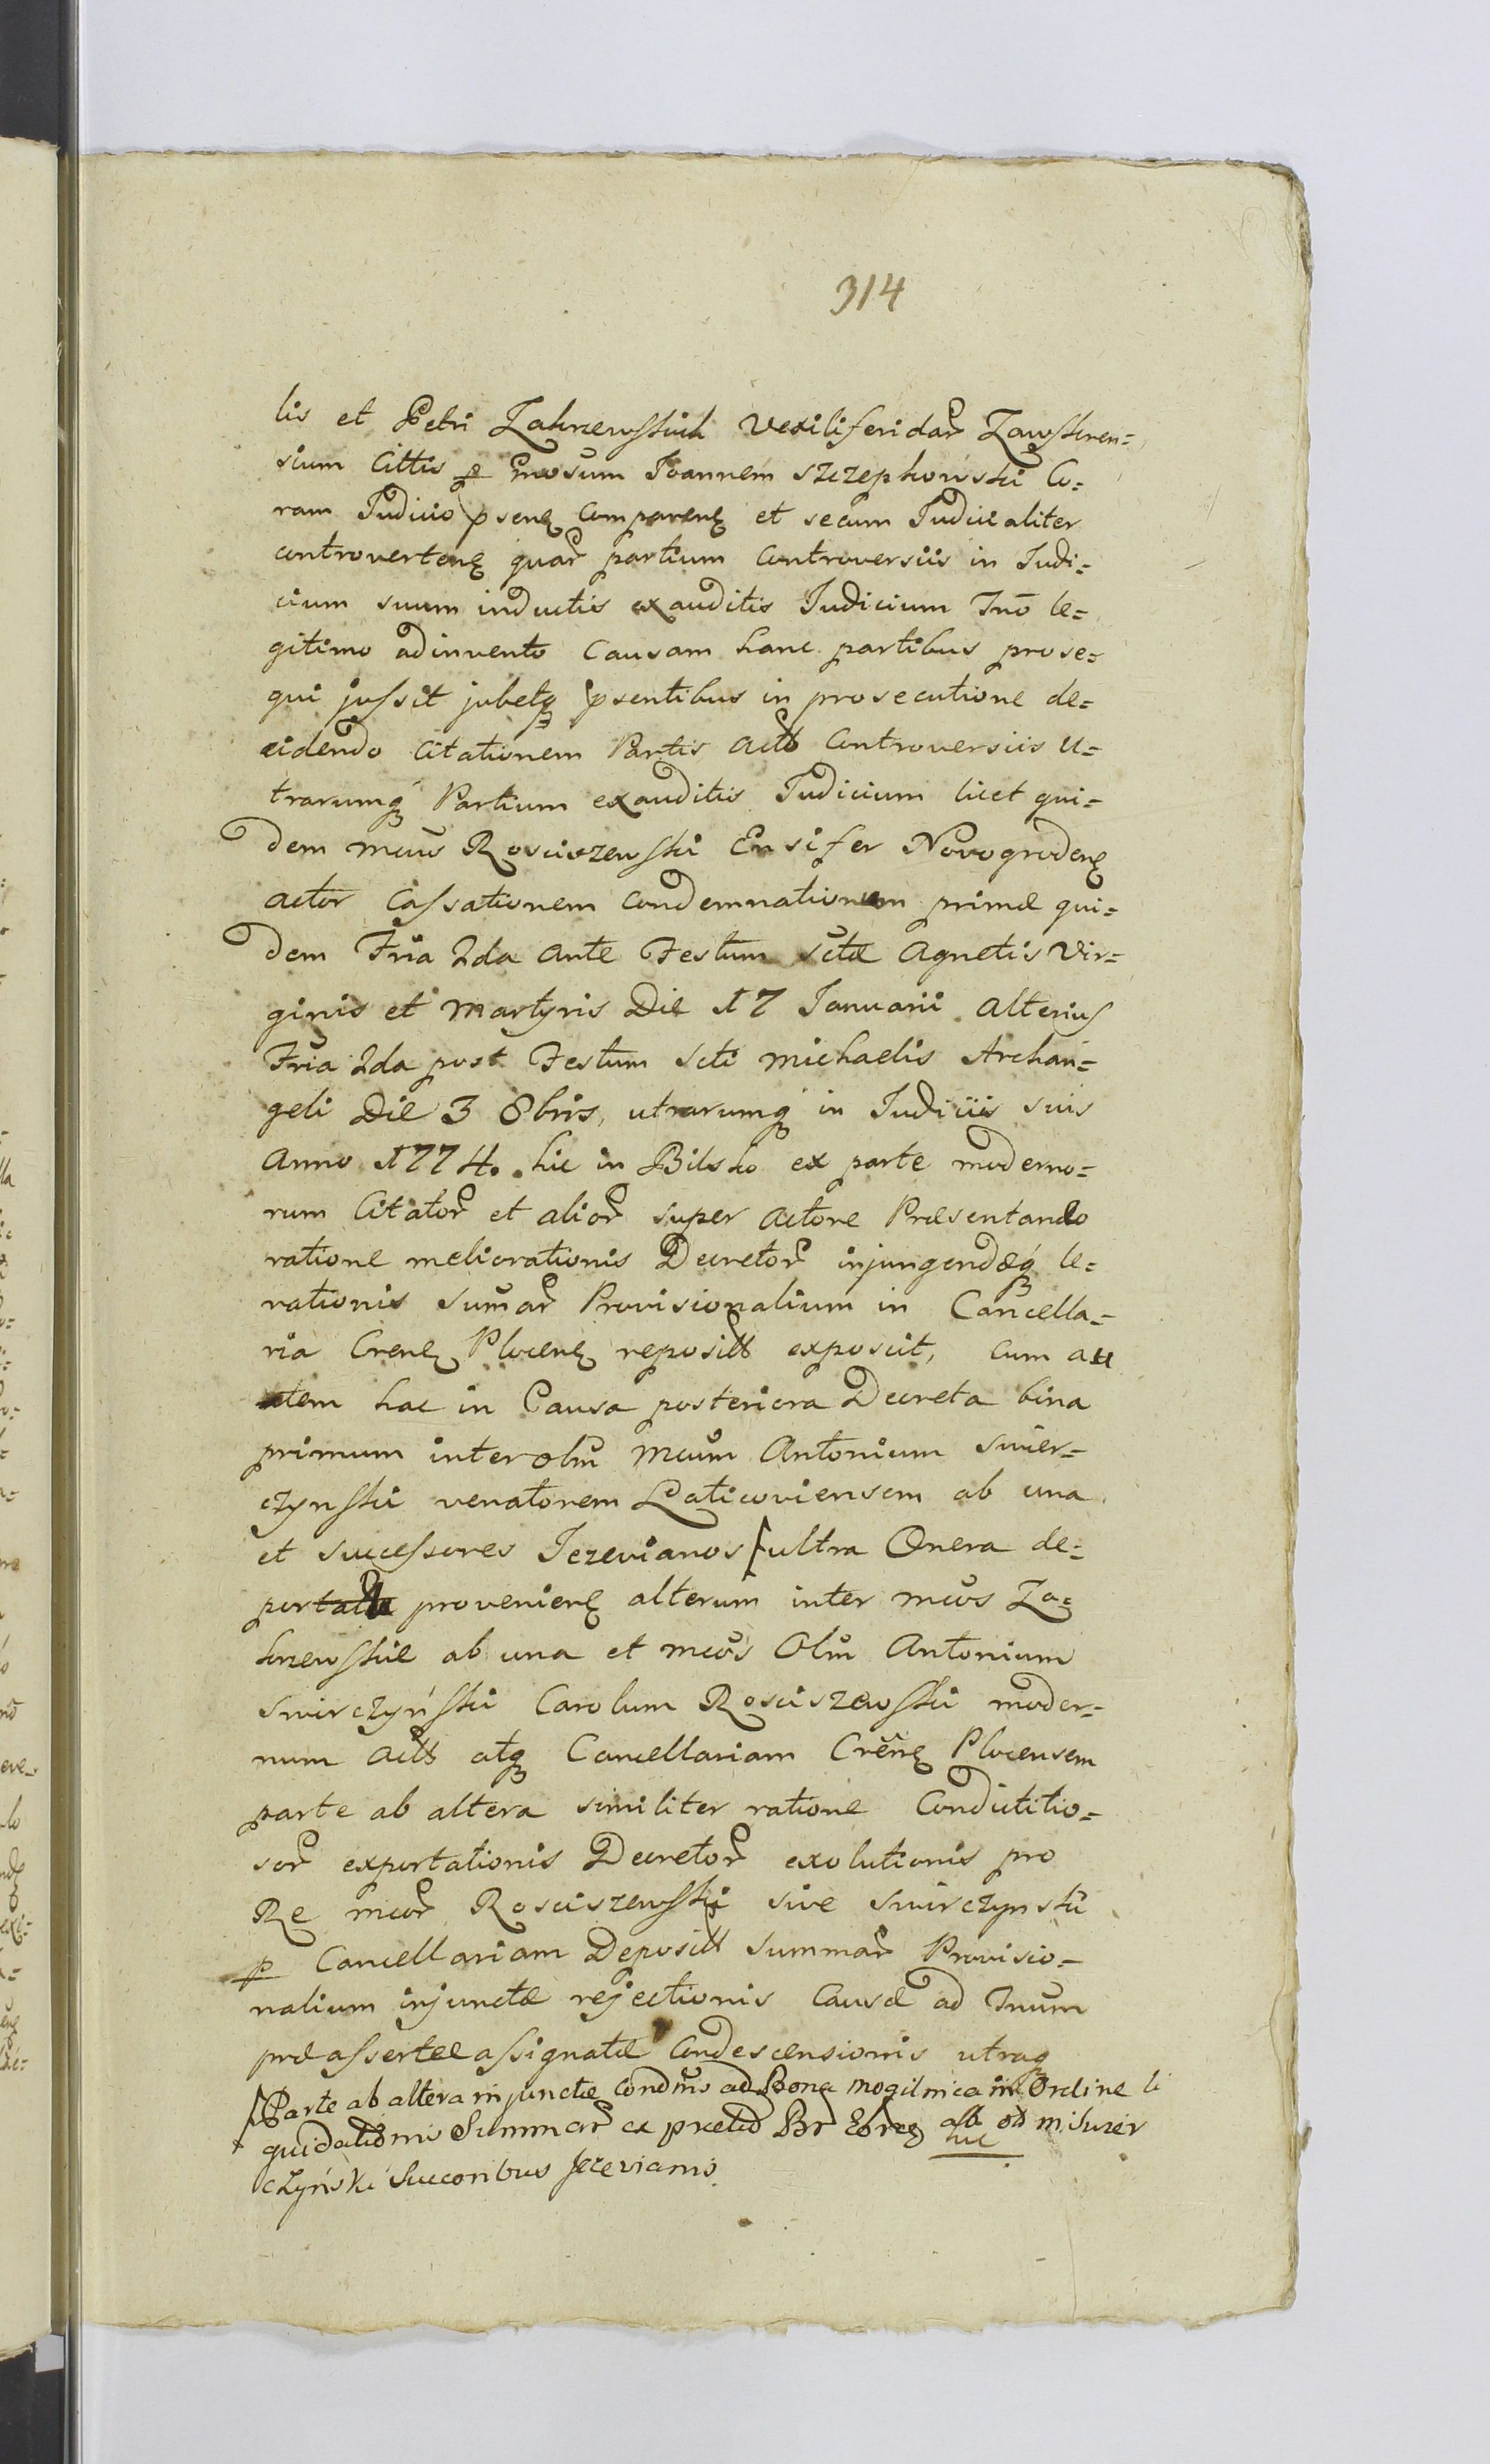 314
lis et Petri Zakrzewskich Vexiliferidar Zawskren=
sium Cittis p Gnosum Joannem Szczepkowski Co=
ram Judicio psenę Comparenę et secum Judicialiter
controvertenę quar partium Controversiis in Judi=
cium suum inductis exauditis Judicium Tno le=
gitimo adinvento Causam hanc partibus prose=
qui jussit jubetq psentibus in prosecutione de=
cidendo Citationem Partis Actt Controversiis u=
trarumq Partium exauditis Judicium licet qui=
dem mcus Rosciszewski Ensifer Novogrodenę
actor Cassationem Condemnationum primæ qui=
dem Fria 2da ante Festum Sctæ Agnetis Vir=
ginis et Martyris Die 17 Januarii alterius
Fria 2da post Festum Scti Michaelis Archan=
geli Die 3 8bris, utrarumq in Judiciis suis
Anno 1774. hic in Bilsko ex parte moderno=
rum Citator et alior super Actore Præsentando
ratione meliorationis Decretor injungendæq le=
vationis Sumar Provisionalium in Cancella=
ria Crenę Plocenę repositt exposcit, Cum au
tem hac in Causa posteriora Decreta bina
primum inter olim Mcum Antonium Swier=
czynski venatorem Laticoviensem ab una
et Successores Jezevianos ultra Onera de=
portata provenienę alterum inter mcos Za=
krzewskie ab una et mcos Olim Antonium
Swirczyński Carolum Rosciszewski moder=
num Actt atq Cancellariam Crenę Plocensem
parte ab altera similiter ratione Condictitio=
sor exportationis Decretor exolutionis pro
Re mcor Rosciszewski sive Swirczynski
p Cancellariam Depositt Summar Provisio=
nalium injunctæ rejectionis Causæ ad Tnum
præassertæ assignatæ Condescensionis utraq
Parte ab altera injunctæ Condnis ad Bona Mogilnica in Ordine li
quidationis Summar ex prætio Br alb od m. Swier
hic
czyński Succoribus Jezevianis